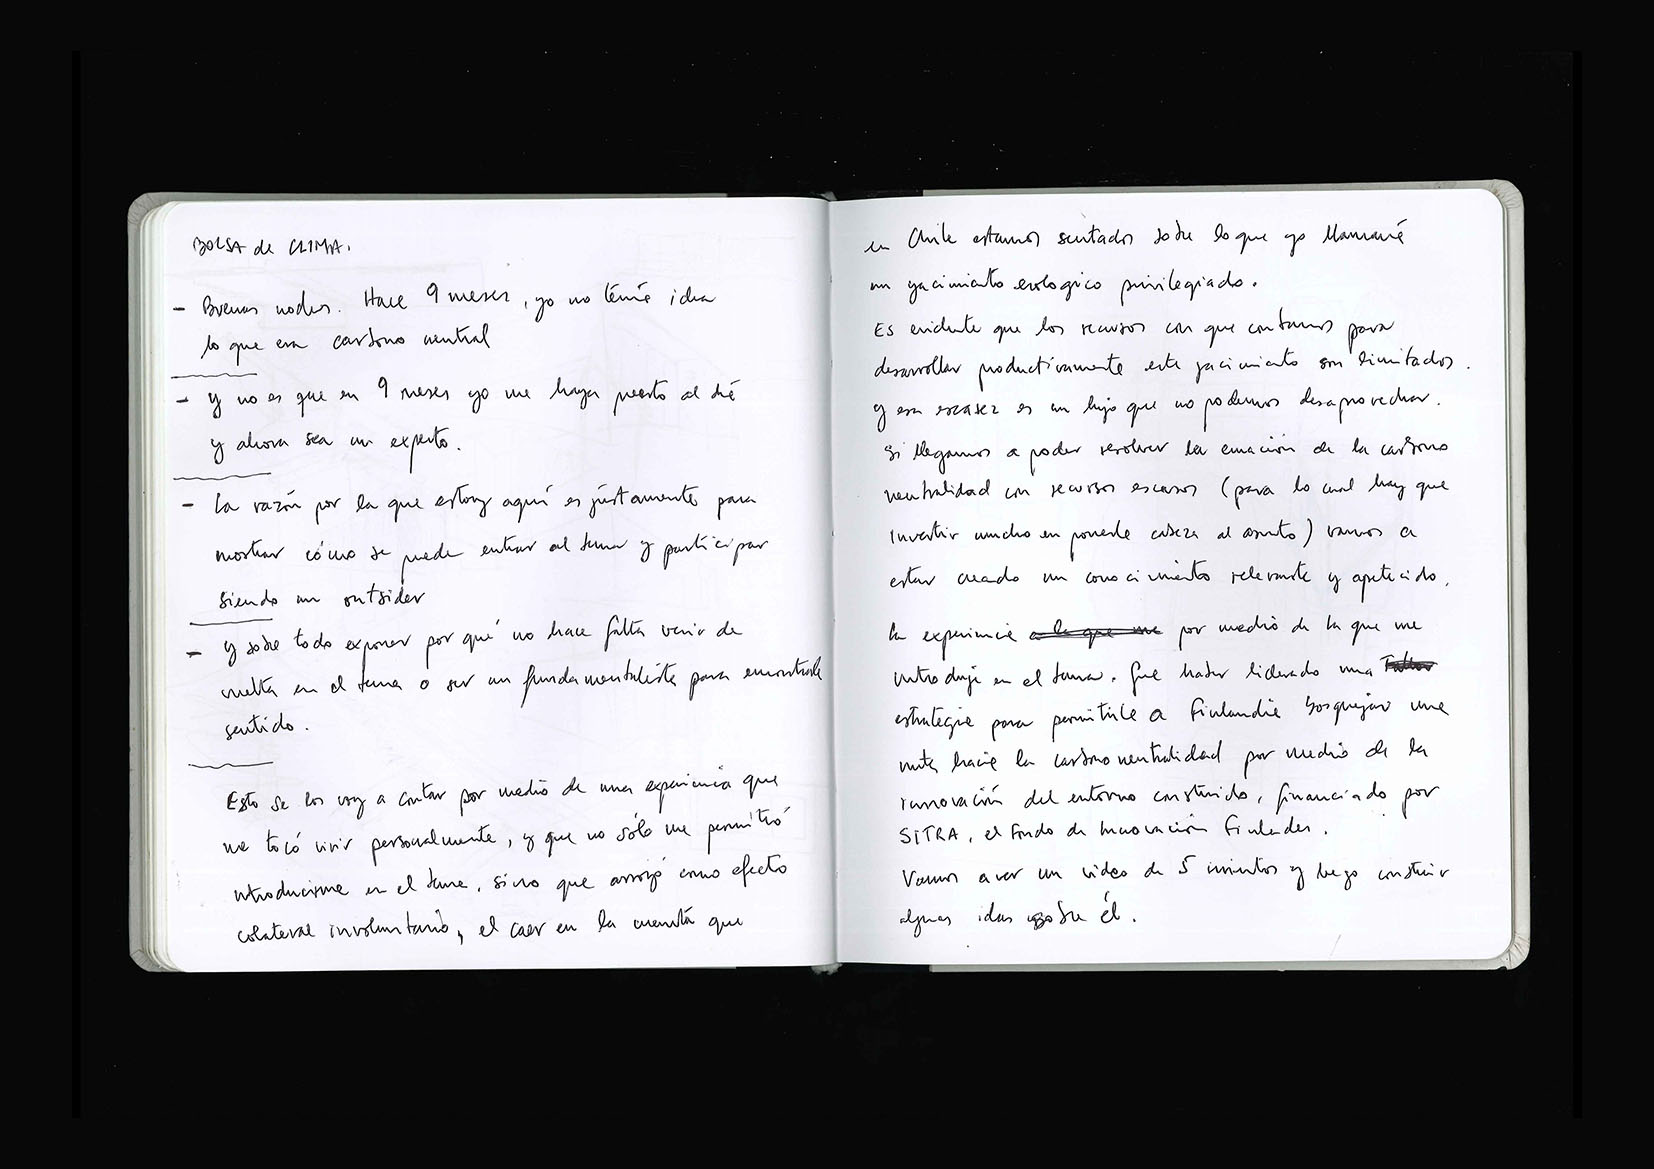 BOLSA de CLIMA.
- Buenas noches. Hace 9 meses, yo no tenía idea
lo que era carbono neutral
- y no es que en 9 meses yo me haya puesto al día
y ahora sea un experto.
- La razón por la que estoy aquí es justamente para
mostrar cómo se puede entrar al tema y participar
siendo un outsider
- y sobre todo exponer por qué no hace falta venir de
vuelta en el tema o ser un fundamentalista para encontrarle
sentido.
Esto se los voy a contar por medio de una experiencia que
me tocó vivir personalmente, y que no sólo me permitió
introducirme en el tema, sino que arrojó como efecto
colateral involuntario, el caer en la cuenta que
en Chile estamos sentados sobre lo que yo llamaré
un yacimiento ecologico privilegiado.
Es evidente que los recursos con que contamos para
desarrollar productivamente este yacimiento son limitados.
y esa escasez es un lujo que no podemos desaprovechar.
Si llegamos a poder resolver la ecuación de la carbono
neutralidad con recursos escasos (para lo cual hay que
invertir mucho en ponerle cabeza al asunto) vamos a
estar creando un conocimiento relevante y apetecido.
La experiencia a la que me por medio de la que me
introduje en el tema, fue haber liderado una
estrategia para permitirle a Finlandia bosquejar una
ruta hacia la carbono neutralidad por medio de la
renovación del entorno construido, financiado por
SITRA, el Fondo de Innovación Finlandes.
Vamos a ver un video de 5 minutos y luego construir
algunas ideas sobre él.